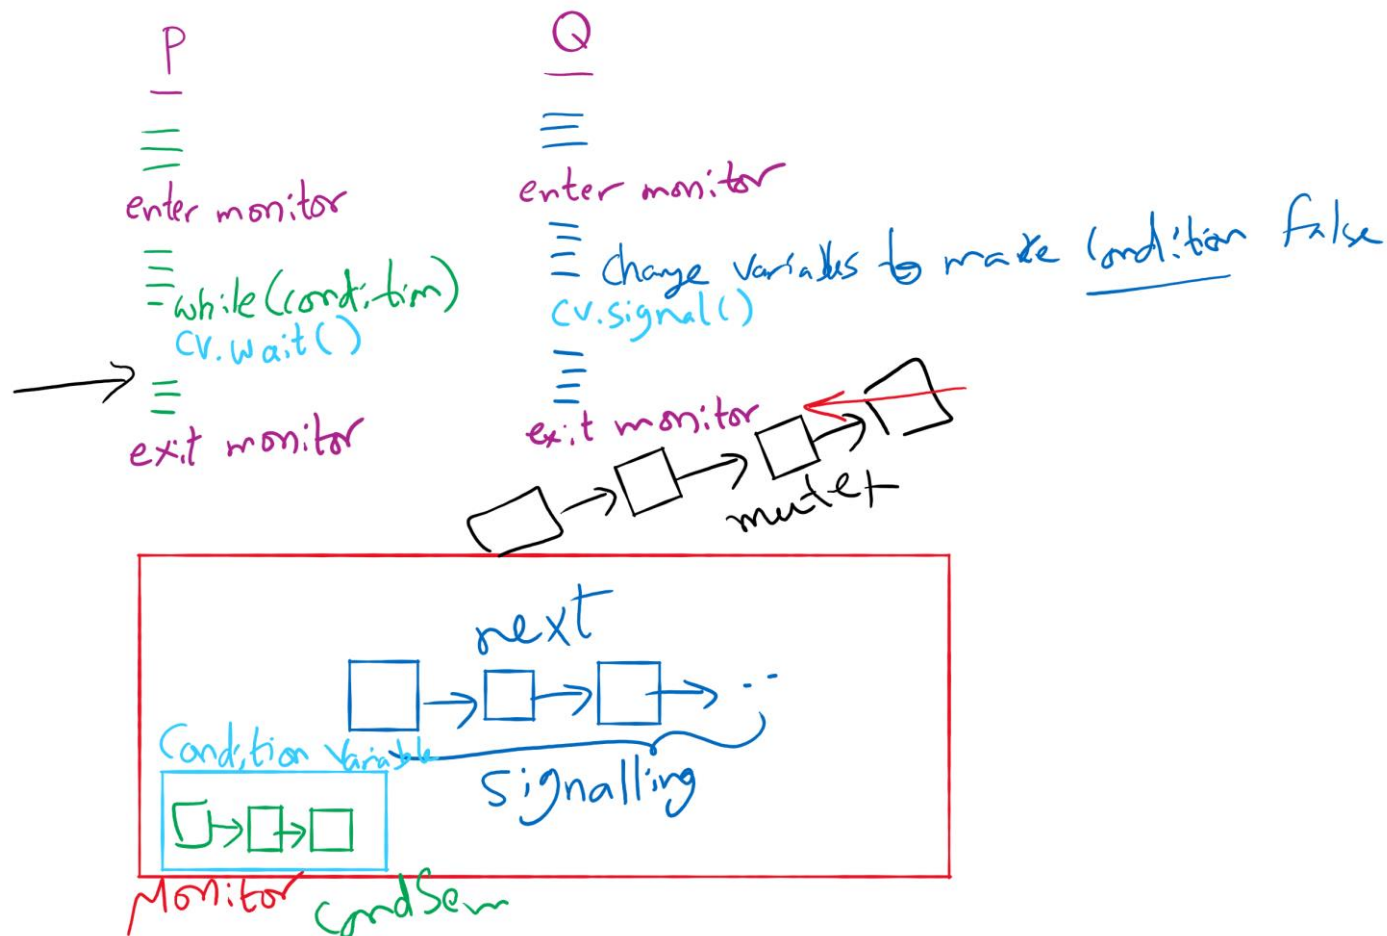 P
enter monitor
while(condition)
cv.wait()
exit monitor
Q
enter monitor
change variables to make condition false
cv.signal()
exit monitor
mutex
next
signalling
Condition Variable
Monitor
condSem